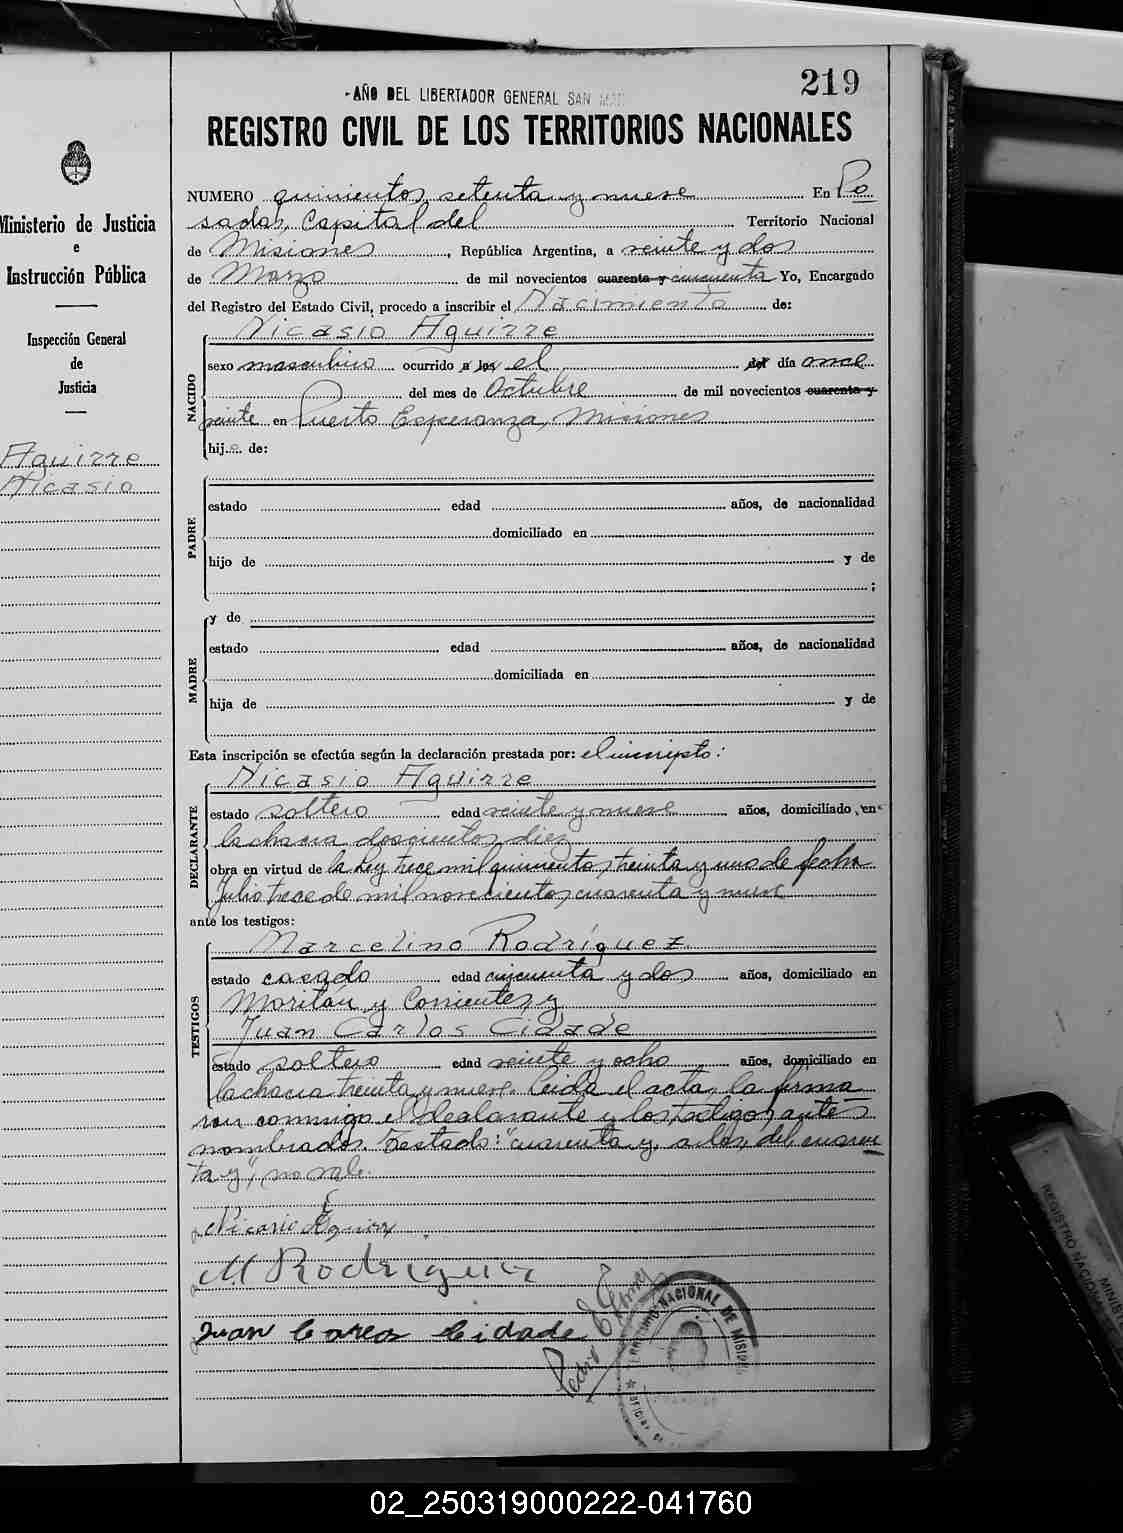 219
-AÑO DEL LIBERTADOR GENERAL SAN
REGISTRO CIVIL DE LOS TERRITORIOS NACIONALES
Ministerio de Justicia
e
Instrucción Pública
Inspección General
de
Justicia
Aguirre
Nicasio
NUMERO quinientos setenta y nueve En Po
sadas, Capital del Territorio Nacional
de Misiones, República Argentina, a veinte y dos
de Marzo de mil novecientos cuarenta y cincuenta Yo, Encargado
del Registro del Estado Civil, procedo a inscribir el Nacimiento de:
NACIDO
Nicasio Aguirre
sexo masculino ocurrido a las el del día once
del mes de Octubre de mil novecientos cuarenta y
veinte en Puerto Esperanza, Misiones
hijo de:
PADRE
estado edad años, de nacionalidad
domiciliado en
hijo de y de
;
MADRE
y de
estado edad años, de nacionalidad
domiciliada en
hija de y de
Esta inscripción se efectúa según la declaración prestada por: el inscripto:
DECLARANTE
Nicasio Aguirre
estado soltero edad veinte y nueve años, domiciliado en
la chacra doscientos diez
obra en virtud de la Ley trece mil quinientos treinta y uno de fecha
Julio trece de mil novecientos cuarenta y nueve
ante los testigos:
TESTIGOS
Marcelino Rodríguez
estado casado edad cincuenta y dos años, domiciliado en
Moritan y Corrientes y
Juan Carlos Cidade
estado soltero edad veinte y ocho años, domiciliado en
la chacra treinta y nueve. Leída el acta, la firma
ron conmigo el declarante y los testigos antes
nombrados. Testado: "cuarenta y, a las, del cuaren
ta y", no vale.
Nicasio Aguirre
M Rodriguez
Juan Carlos Cidade
Pedro
TERRITORIO NACIONAL DE MISIONES
REGISTRO NACIONAL
MINISTE
02_250319000222-041760